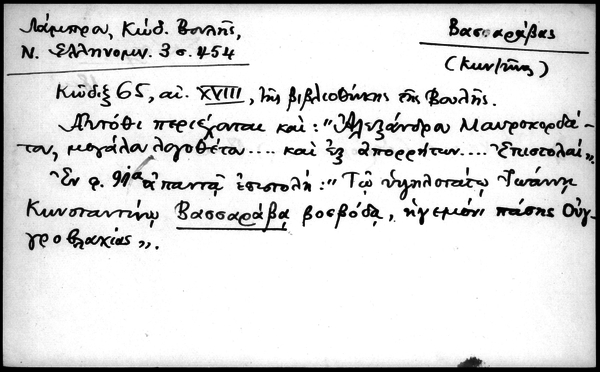 Λάμπρου, Κώδ. Βουλῆς,
Ν. Ἑλληνομν. 3 σ. 454
Βασσαράβας
(Κων/τῖνος)
Κῶδιξ 65, αἰ. XVIII, τῆς βιβλιοθήκης τῆς Βουλῆς.
Αὐτόθι περιέχονται καὶ: "Ἀλεξάνδρου Μαυροκορδά-
του, μεγάλου λογοθέτου.... καὶ ἐξ ἀπορρήτων.... Ἐπιστολαί".
Ἐν φ. 91α ἀπαντᾷ ἐπιστολή: "Τῷ ὑψηλοτάτῳ Ἰωάννῃ
Κωνσταντίνῳ Βασσαράβᾳ βοεβόδᾳ, ἡγεμόνι πάσης Οὐγ-
γροβλαχίας".